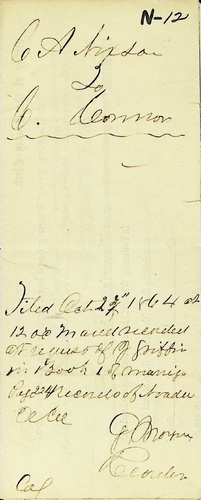 N-12
C A Nixson
To
C. Connor
Filed Oct 22nd 1864 at
12 o.c M and recorded
at request of J Griffin
in Book 1 of Marriage
Page 224 Records of
J
Recorder
Col